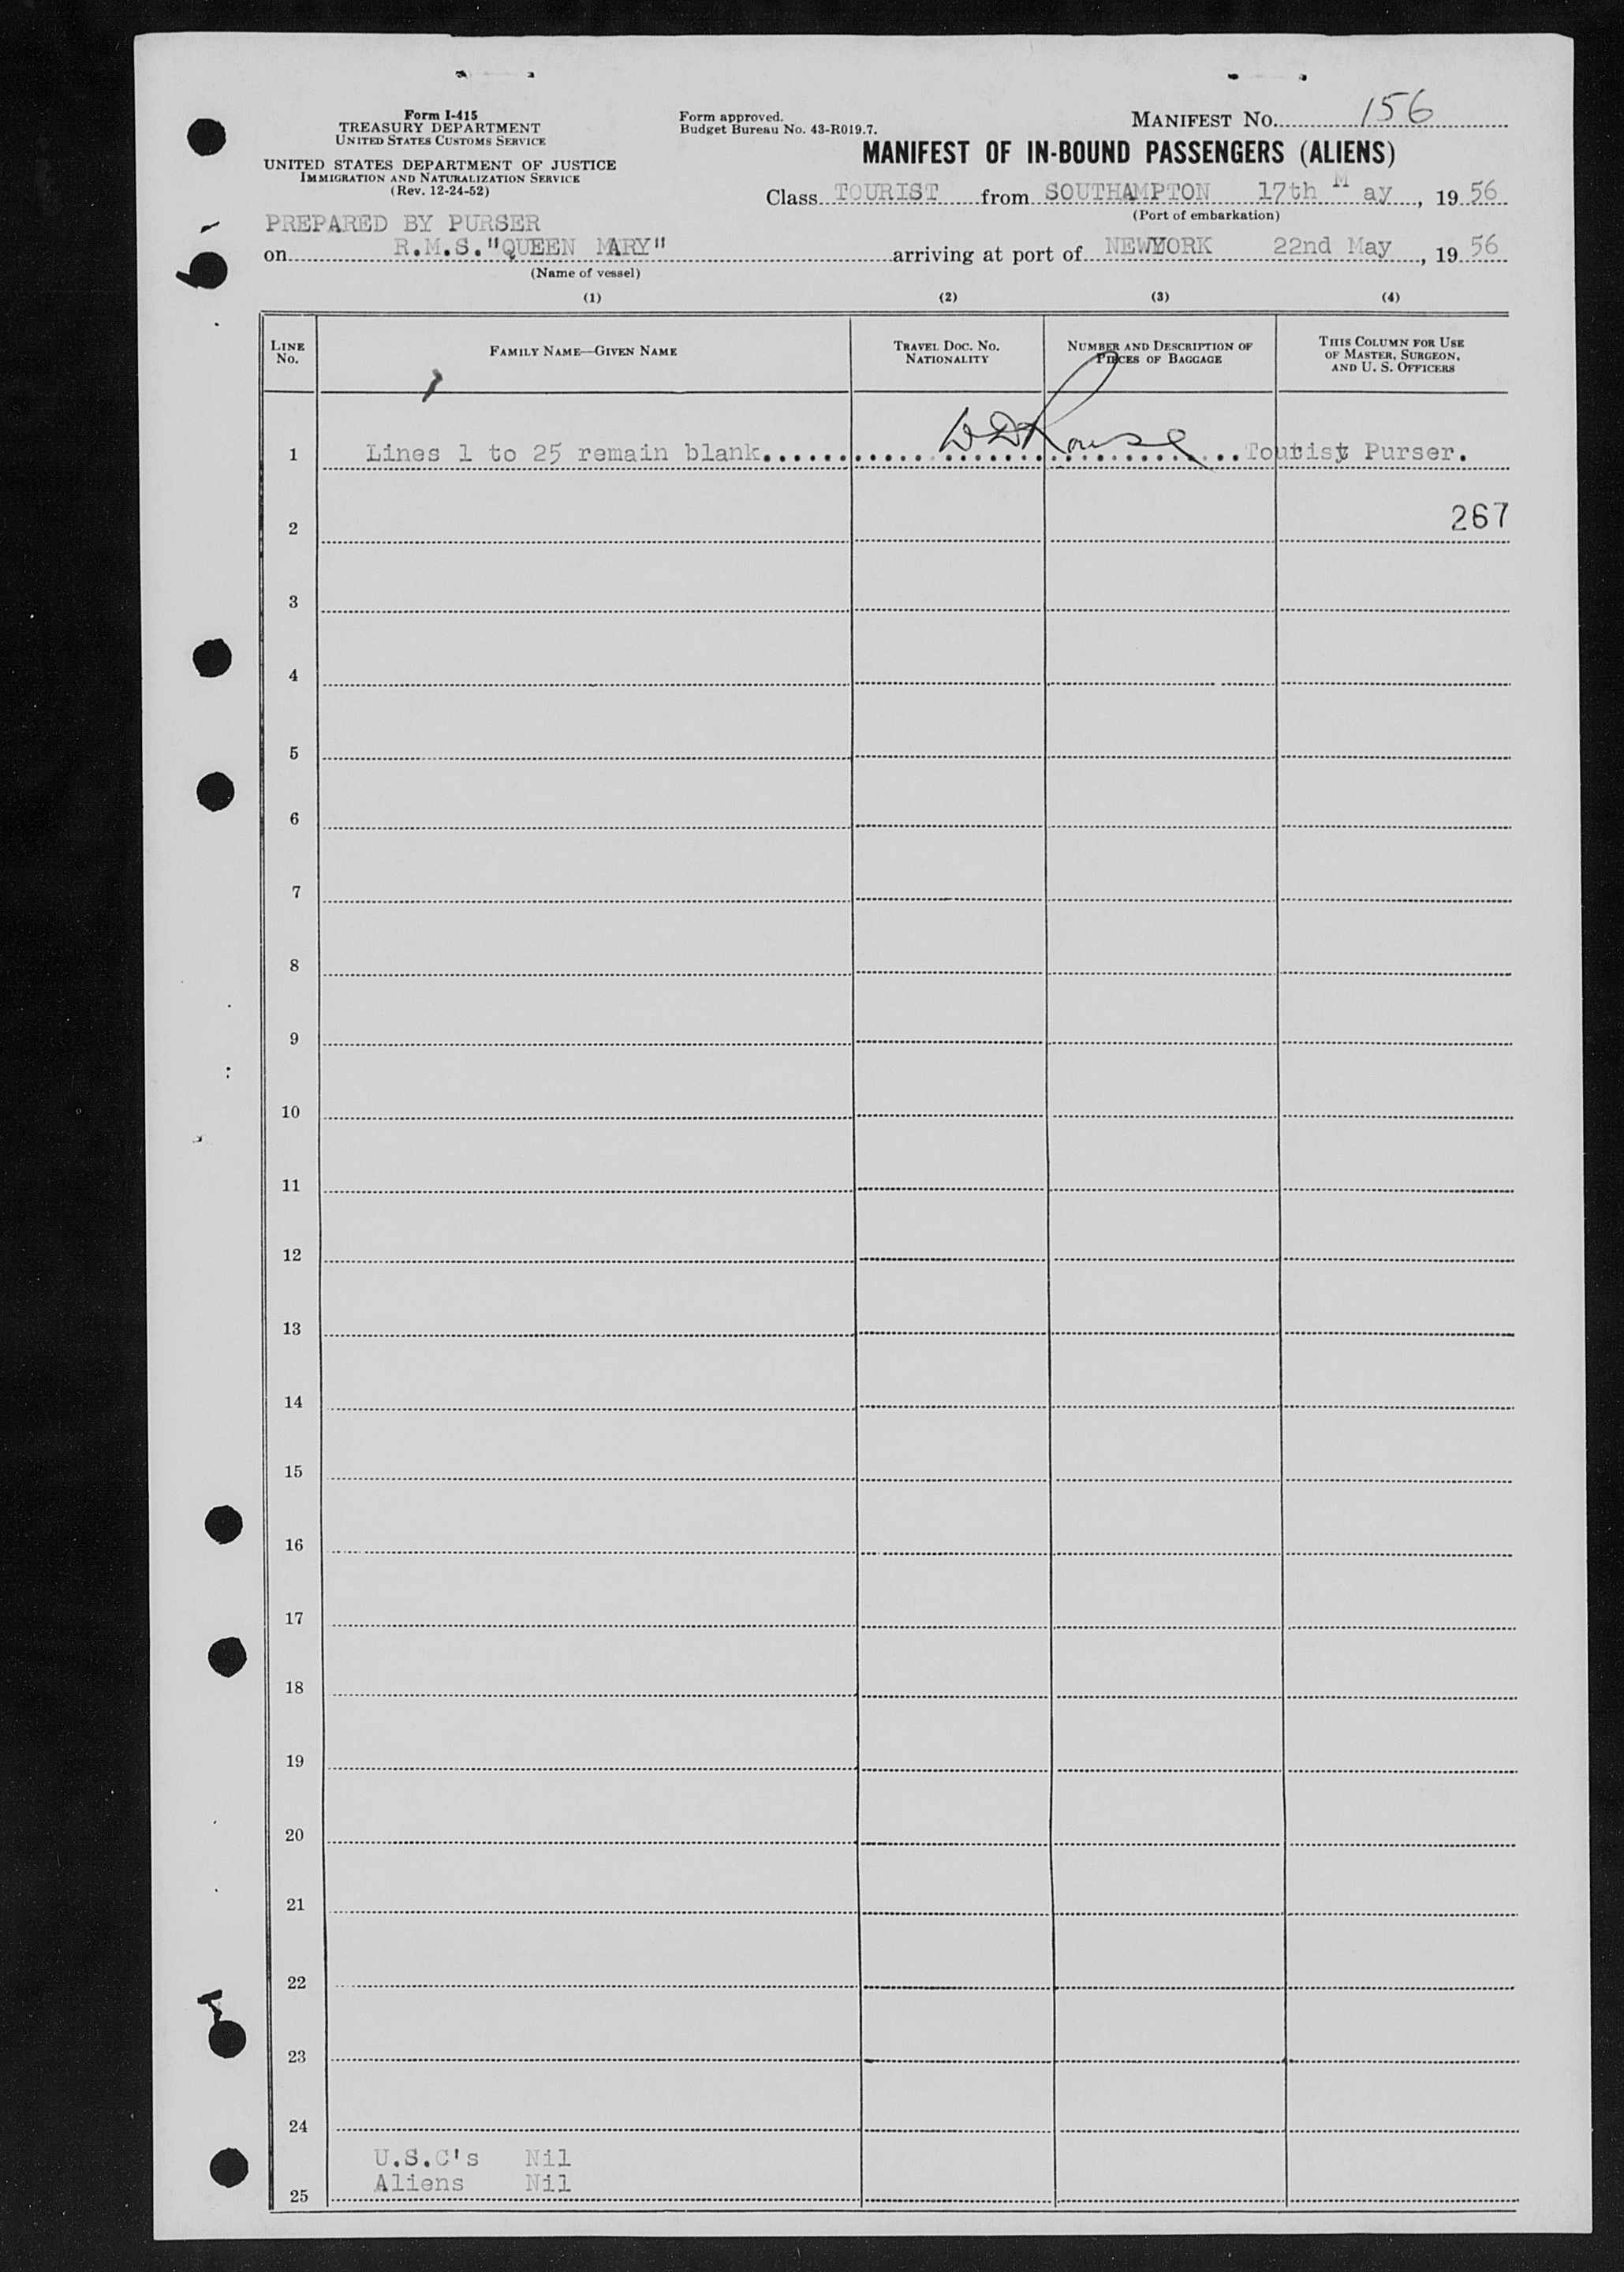 Form I-415
TREASURY DEPARTMENT
UNITED STATES CUSTOMS SERVICE
UNITED STATES DEPARTMENT OF JUSTICE
IMMIGRATION AND NATURALIZATION SERVICE
(Rev. 12-24-52)
Form approved.
Budget Bureau No. 43-R019.7.
MANIFEST NO. 156
MANIFEST OF IN-BOUND PASSENGERS (ALIENS)
Class TOURIST from SOUTHAMPTON 17th May, 19 56
(Port of embarkation)
PREPARED BY PURSER
on R.M.S."QUEEN MARY" arriving at port of NEWYORK 22nd May, 19 56
(Name of vessel)
(1) (2) (3) (4)
LINE NO.
FAMILY NAME—GIVEN NAME
TRAVEL DOC. NO. NATIONALITY
NUMBER AND DESCRIPTION OF PIECES OF BAGGAGE
THIS COLUMN FOR USE OF MASTER, SURGEON, AND U. S. OFFICERS
1 Lines 1 to 25 remain blank. DDRouse Tourist Purser.
2 267
3
4
5
6
7
8
9
10
11
12
13
14
15
16
17
18
19
20
21
22
23
24
U.S.C's Nil
25 Aliens Nil